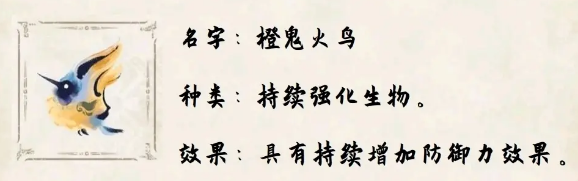 名字：橙鬼火鸟
种类：持续强化生物。
效果：具有持续增加防御力效果。